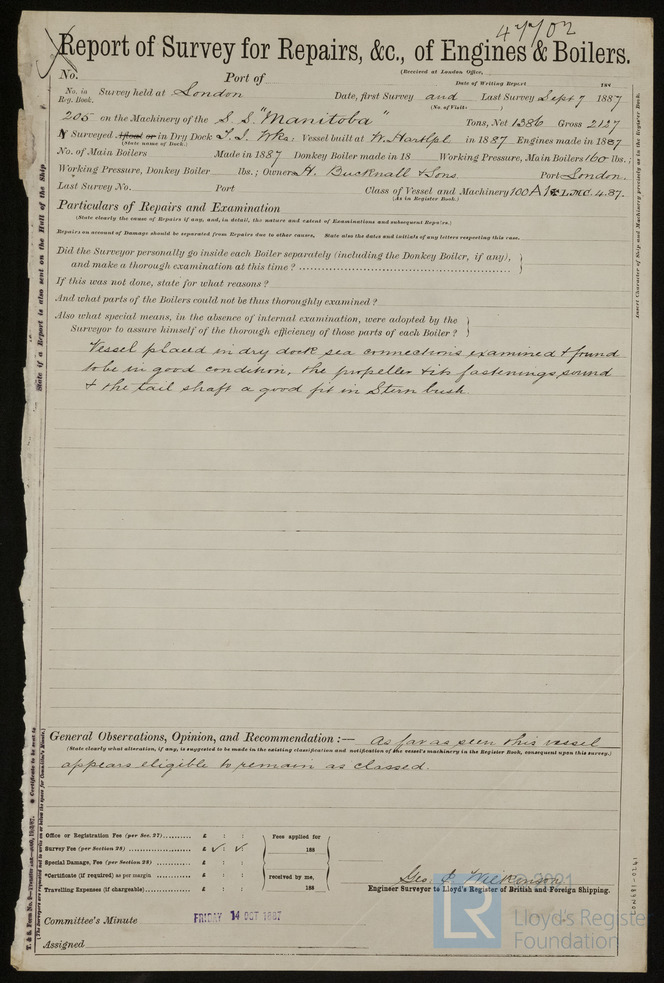 47702
Report of Survey for Repairs, &c., of Engines & Boilers.
(Received at London Office,
No. Port of
Date of Writing Report 188
No. in Reg. Book. Survey held at London Date, first Survey and Last Survey Sept 7 1887
(No. of Visits )
205 on the Machinery of the S.S. "Manitoba" Tons, Net 1386 Gross 2127
Surveyed Afloat or in Dry Dock T. I. Wks. Vessel built at W. Hartlpl in 1887 Engines made in 1887
(State name of Dock.)
No. of Main Boilers Made in 1887 Donkey Boiler made in 18 Working Pressure, Main Boilers 160 lbs.;
Working Pressure, Donkey Boiler lbs.; Owners H. Bucknall & Sons. Port London.
Last Survey No. Port Class of Vessel and Machinery 100A1 ✠ L.M.C. 4.87.
(As in Register Book.)
Particulars of Repairs and Examination
(State clearly the cause of Repairs if any, and, in detail, the nature and extent of Examinations and subsequent Repairs.)
Repairs on account of Damage should be separated from Repairs due to other causes. State also the dates and initials of any letters respecting this case.
Did the Surveyor personally go inside each Boiler separately (including the Donkey Boiler, if any),
and make a thorough examination at this time?
If this was not done, state for what reasons?
And what parts of the Boilers could not be thus thoroughly examined?
Also what special means, in the absence of internal examination, were adopted by the
Surveyor to assure himself of the thorough efficiency of those parts of each Boiler?
Vessel placed in dry dock sea connections examined & found
to be in good condition, the propeller & its fastenings sound
& the tail shaft a good fit in Stern bush.
General Observations, Opinion, and Recommendation :— As far as seen this vessel
(State clearly what alteration, if any, is suggested to be made in the existing classification and notification of the vessel's machinery in the Register Book, consequent upon this survey.)
appears eligible to remain as classed.
Office or Registration Fee (per Sec. 27) £ : :
Survey Fee (per Section 28) £ : :
Special Damage, Fee (per Section 28) £ : :
*Certificate (if required) as per margin £ : :
Travelling Expenses (if chargeable) £ : :
Fees applied for
188
received by me,
188
Geo. Wilkinson
Engineer Surveyor to Lloyd's Register of British and Foreign Shipping.
Committee's Minute FRIDAY 14 OCT 1887
Assigned
State if a Report is also sent on the Hull of the Ship
Insert Character of Ship and Machinery precisely as in the Register Book.
© 2021
LR
Lloyd's Register
Foundation